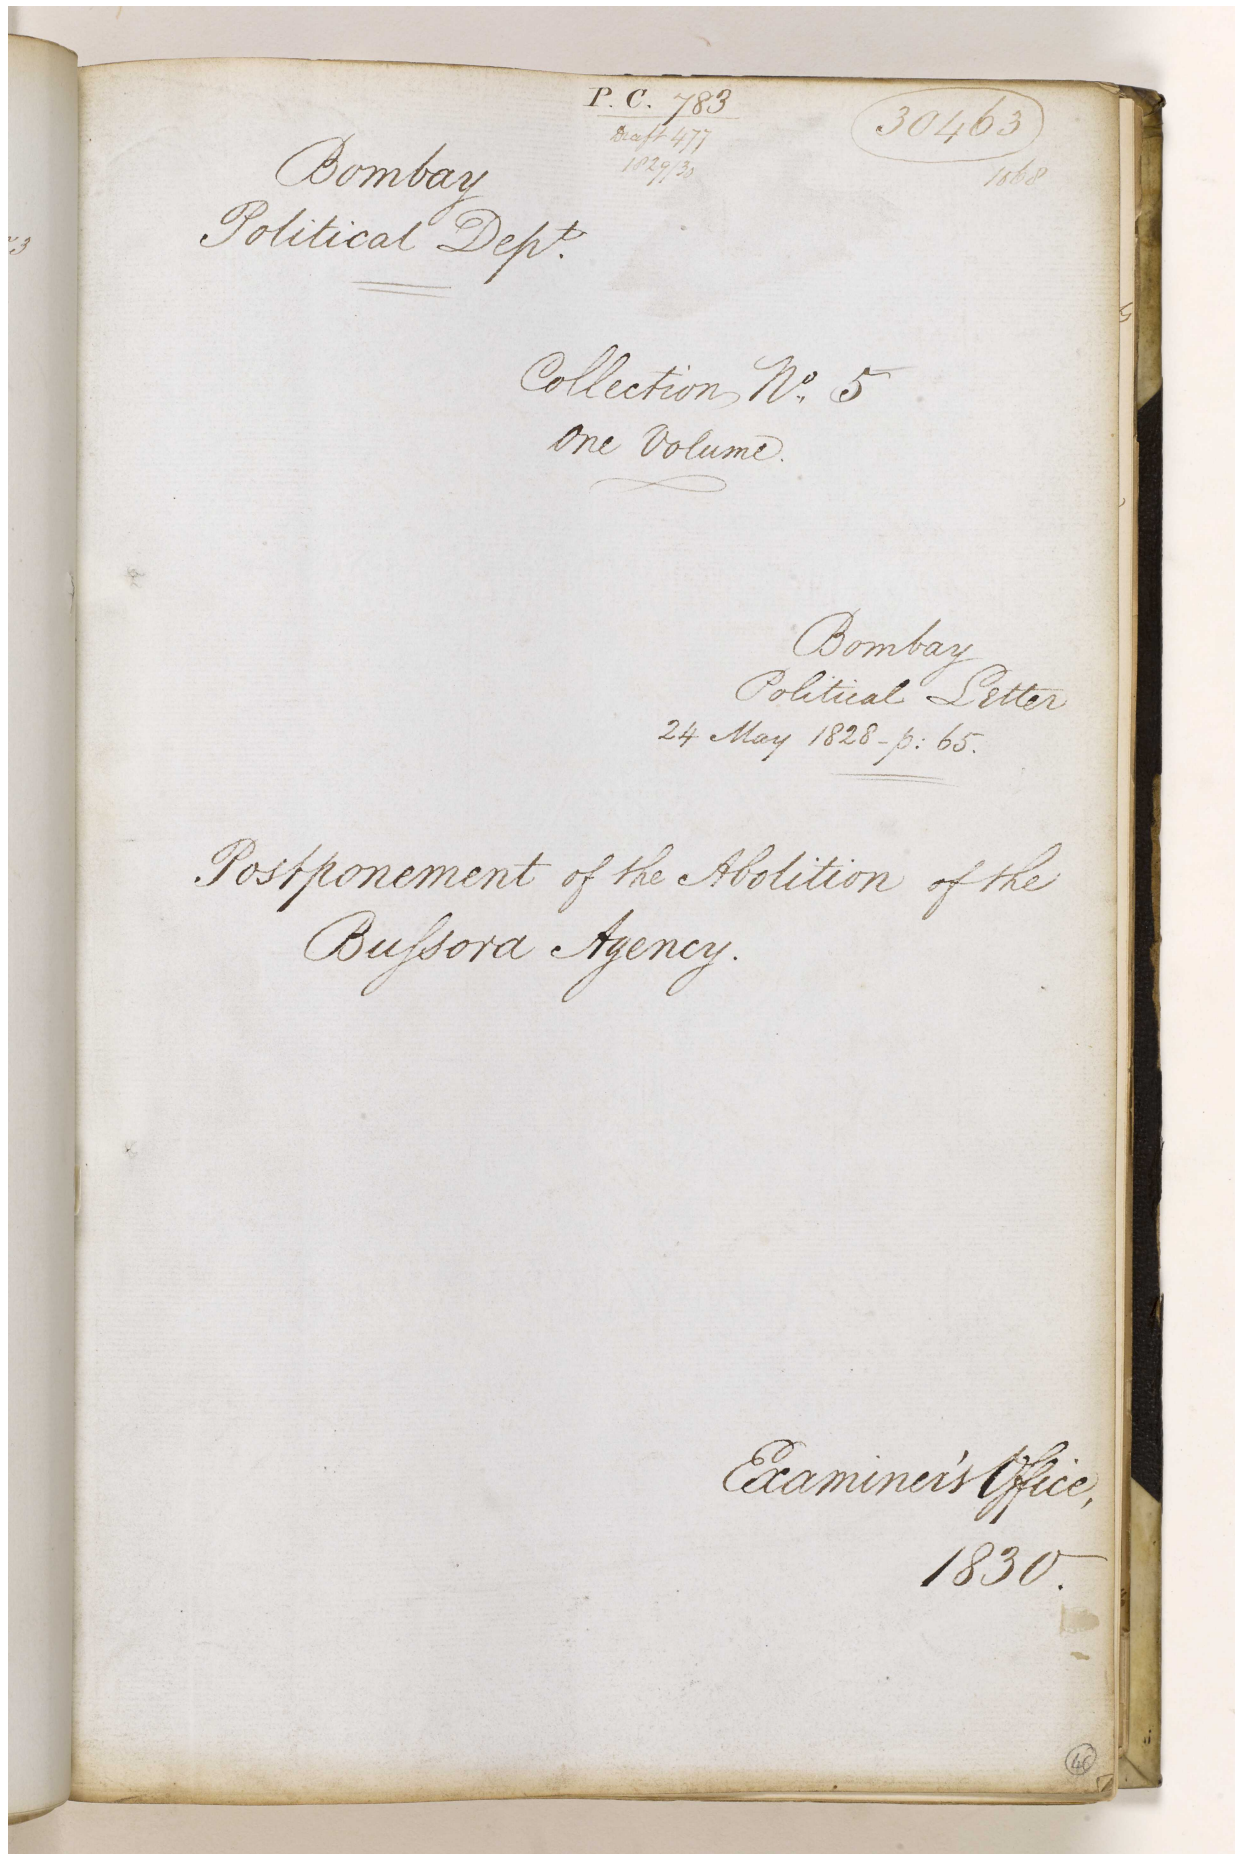 P. C. 783
Draft 477
1829/30
30463
1068
Bombay
Political Dept.
Collection No. 5
One Volume.
Bombay
Political Letter
24 May 1828 - p: 65.
Postponement of the Abolition of the
Bufsora Agency.
Examiner's Office,
1830.